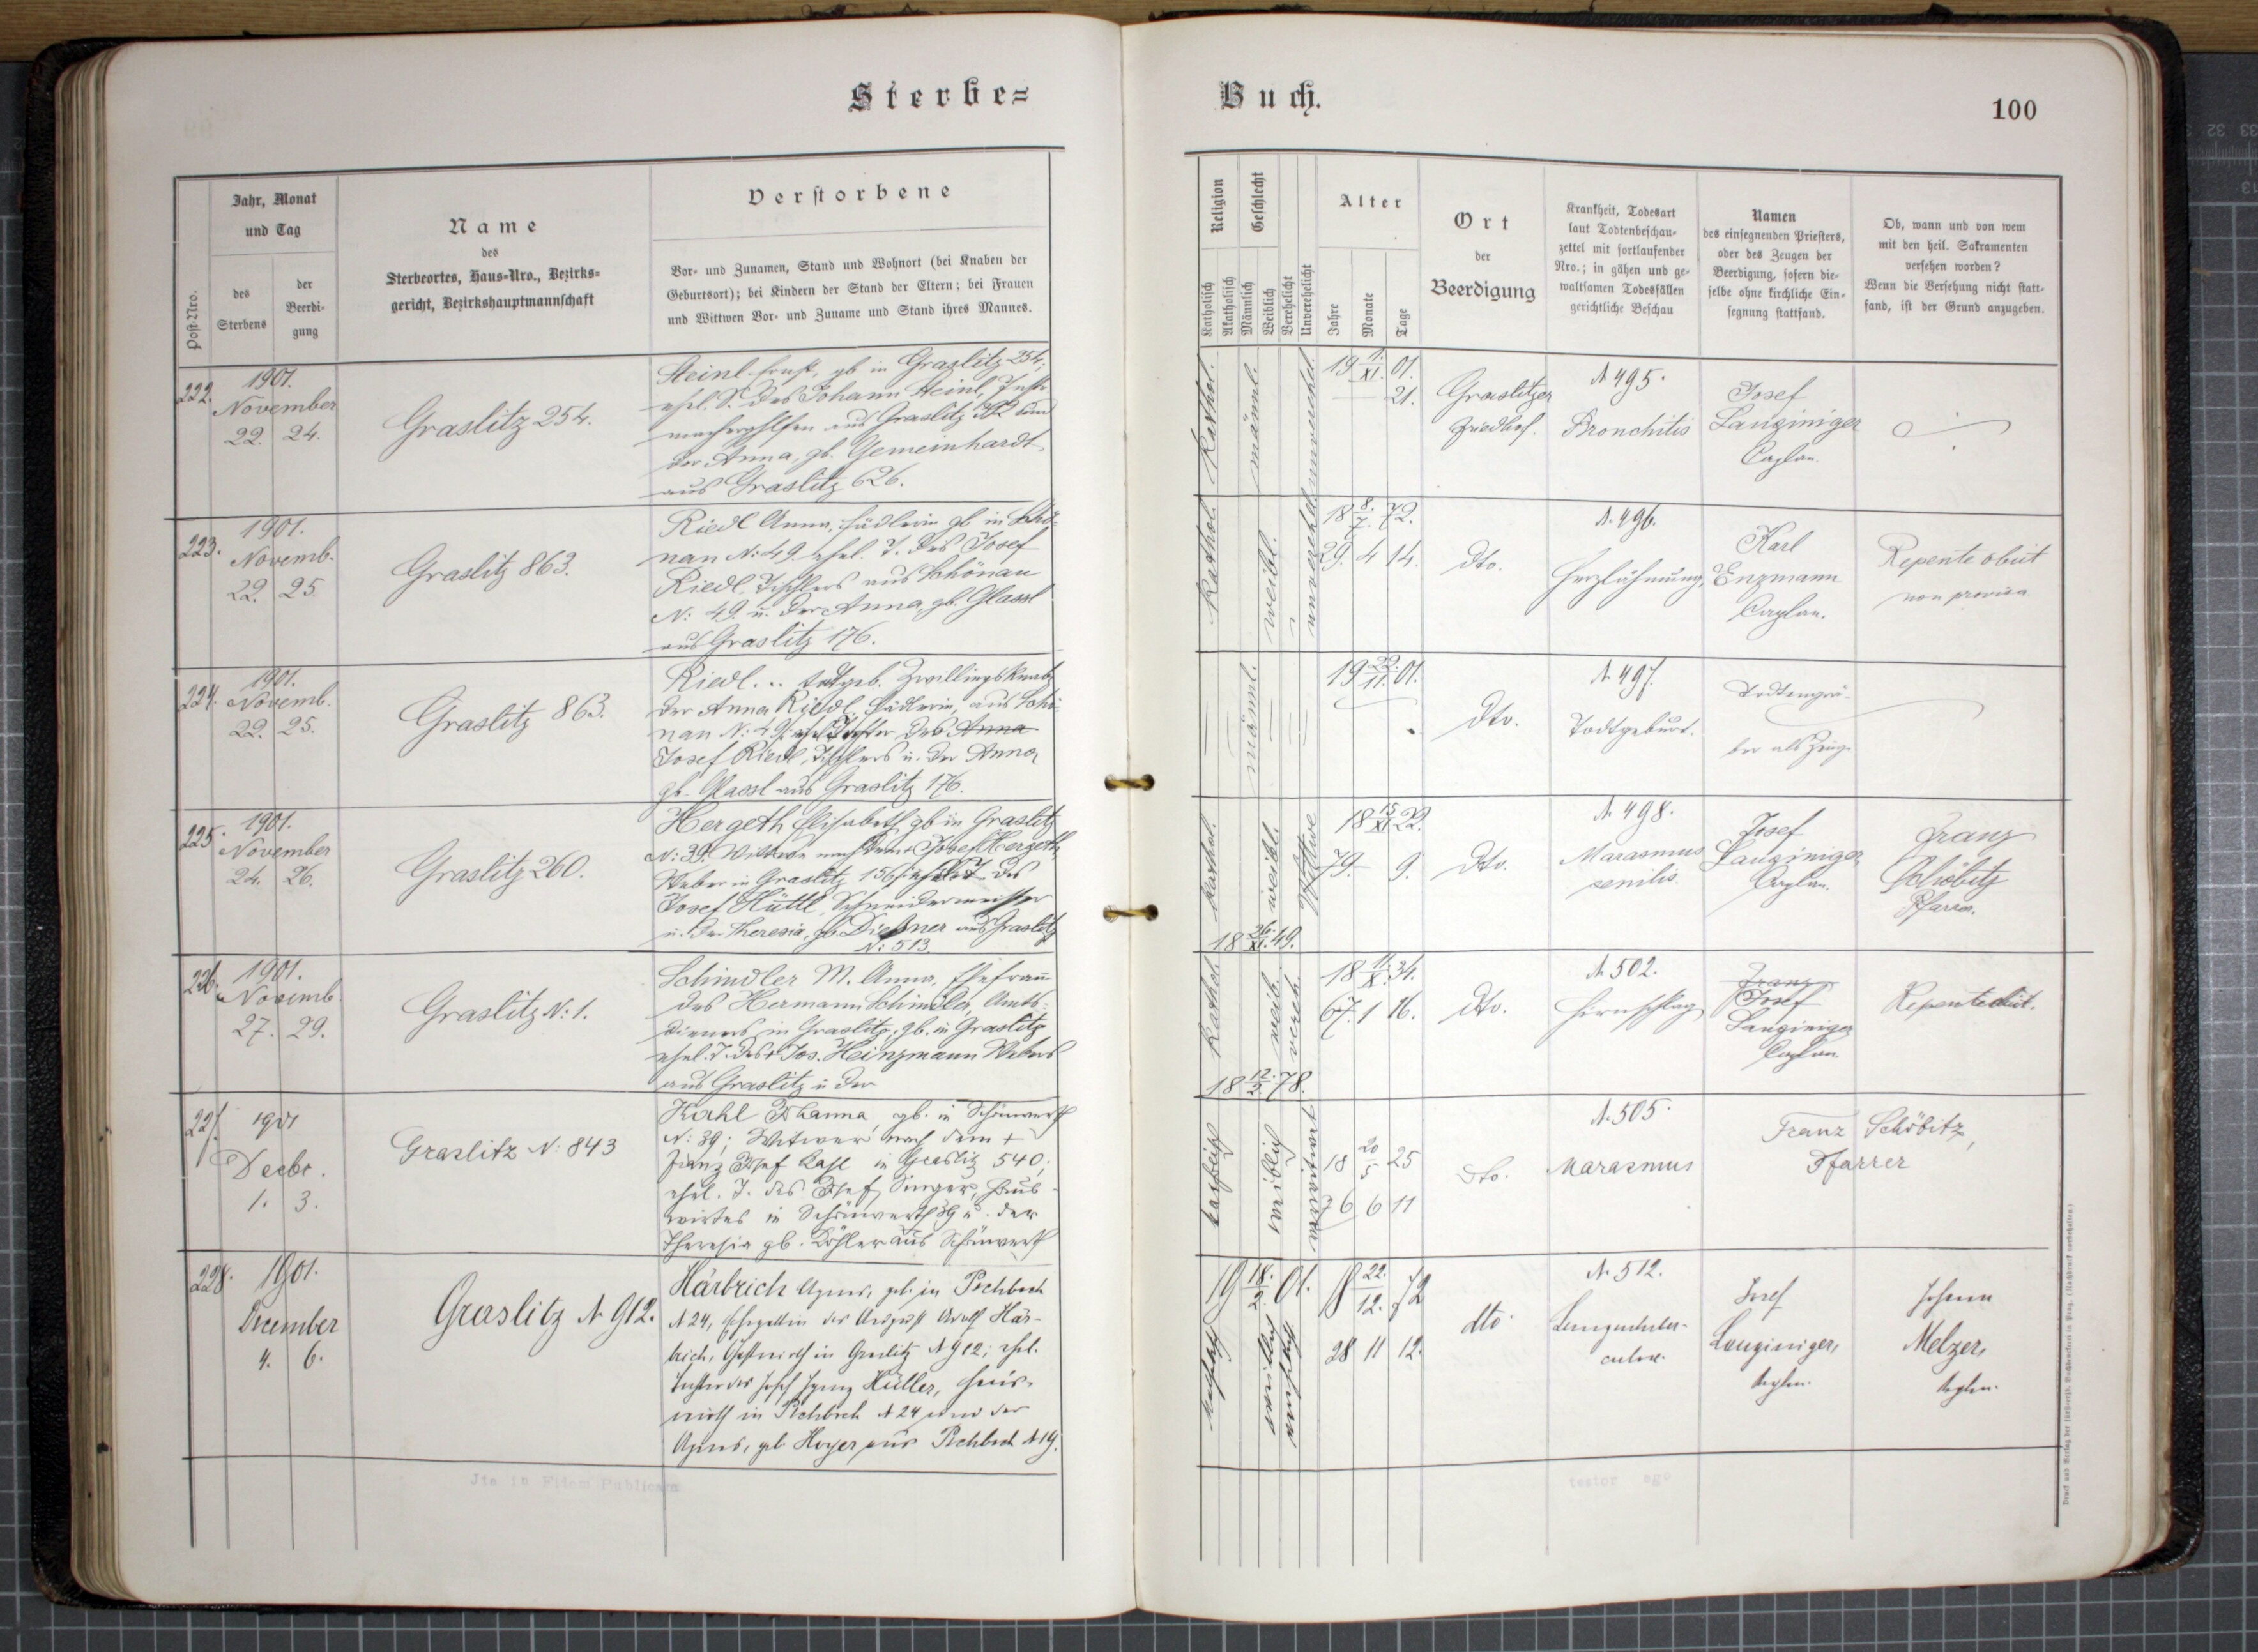 Sterbe=
Buch.
100
Post-Nro.
Jahr, Monat
und Tag
des
Sterbens
der
Beerdi-
gung
Name
des
Sterbeortes, Haus-Nro., Bezirks=
gericht, Bezirkshauptmannschaft
Verstorbene
Vor- und Zunamen, Stand und Wohnort (bei Knaben der
Geburtsort); bei Kindern der Stand der Eltern; bei Frauen
und Wittwen Vor- und Zuname und Stand ihres Mannes.
Religion
Katholisch
Akatholisch
Geschlecht
Männlich
Weiblich
Verehelicht
Unverehelicht
Alter
Jahre
Monate
Tage
Ort
der
Beerdigung
Krankheit, Todesart
laut Todtenbeschau-
zettel mit fortlaufender
Nro.; in gähen und ge-
waltsamen Todesfällen
gerichtliche Beschau
Namen
des einsegnenden Priesters,
oder des Zeugen der
Beerdigung, sofern die-
selbe ohne kirchliche Ein-
segnung stattfand.
Ob, wann und von wem
mit den heil. Sakramenten
versehen worden?
Wenn die Versehung nicht statt-
fand, ist der Grund anzugeben.
222.
1901.
November
22. 24.
Graslitz 254.
Heinl Ernst, gb in Graslitz 254;
ehel. S. des Johann Heinl, Instr.
aus Graslitz und
der Anna, gb. Gemeinhardt,
aus Graslitz 626.
Kathol.
männl.
unverehel.
19 1./XI. 01.
21.
Graslitzer
Friedhof.
N 495.
Bronchitis
Josef
Lauginiger
Caplan.
223.
1901.
Novemb.
22. 25.
Graslitz 863.
Riedl Anna, Fädlerin gb in Schö-
nau N: 49. ehel. T. des Josef
Riedl, Tischlers aus Schönau
N: 49. u. der Anna, gb. Glassl
aus Graslitz 176.
Kathol.
weibl.
unverehel.
18 8./7. 72.
29. 4 14.
dto.
N. 496.
Herzlähmung,
Karl
Enzmann
Caplan.
Repente obiit
non provisa
224.
1901.
Novemb.
22. 25.
Graslitz 863.
Riedl... totgeb. Zwillings Knabe
der Anna Riedl, Fädlerin, aus Schö-
nau N: 49; ehel. Tochter des Anna
Josef Riedl, Tischlers u. der Anna
gb. Glassl aus Graslitz 176.
männl.
19 22./11. 01.
dto.
N. 497.
Todtgeburt.
Todtengrä-
ber als Zeuge
225.
1901.
November
24. 26.
Graslitz 260.
Hergeth Elisabeth, gb in Graslitz
N: 39. Witwe nach dem + Josef Hergeth,
Weber in Graslitz 156; ehel. T. des
Josef Hüttl, Schneidermeister
u. der Theresia, gb. Dießner aus Graslitz
N: 513.
Kathol.
weibl.
Wittwe
18 15./XI. 22.
79. 9.
dto.
N. 498.
Marasmus
senilis.
Josef
Lauginiger
Caplan.
Franz
Schöbitz
Pfarrer.
18 26./XI. 49.
226.
1901.
Novemb.
27. 29.
Graslitz N: 1.
Schindler M. Anna, Ehefrau
des Hermann Schindler, Amts-
dieners in Graslitz, gb. in Graslitz
ehel. T. des + Jos. Heinzmann Webers
aus Graslitz u. der
Kathol.
weib.
vereh.
18 11./X. 34.
67. 1 16.
dto.
N. 502.
Hirnschlag
Franz
Josef
Lauginiger
Caplan
Repente obiit.
18 12./2. 78.
227.
1901
Decbr.
1. 3.
Graslitz N: 843
Kahl Johanna, gb. in Schönwerth
N: 39; Witwe nach dem +
Franz Josef Kahl in Graslitz 540;
ehel. T. des Josef Singer, Haus-
wirtes in Schönwerth 39 u. der
Theresia gb. Köhler aus Schönwerth
katholisch
weiblich
verwitwet
18 20/5 25
76 6 11
dto.
N. 505.
Marasmus
Franz Schöbitz,
Pfarrer
228.
1901.
December
4. 6.
Graslitz N 912.
Härtrich Agnes, geb. in Pechbach
N 24, Ehegattin des August Adolf Här-
trich, Gastwirth in Graslitz N 912; ehel.
Tochter des Josef Ignaz Hüller, Haus-
wirth in Pechbach N 24 und der
Agnes, geb Hoyer aus Pechbach N 19.
katholisch
weiblich
verehelicht
19 18./2. 01.
18 22./12. 72
28 11 12.
dto.
N. 512.
Lungentuber-
culose.
Josef
Lauginiger,
Caplan.
Johann
Melzer,
Caplan.
Jta in Fidem Publicam
testor ego